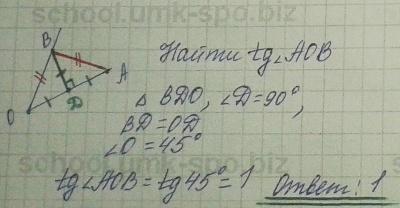 school.umk-spo.biz
B
Найти tg∠AOB
A
O
D
△ BDO, ∠D=90°,
BD=OD
∠O=45°
tg∠AOB=tg45°=1 Ответ: 1
school.umk-spo.biz